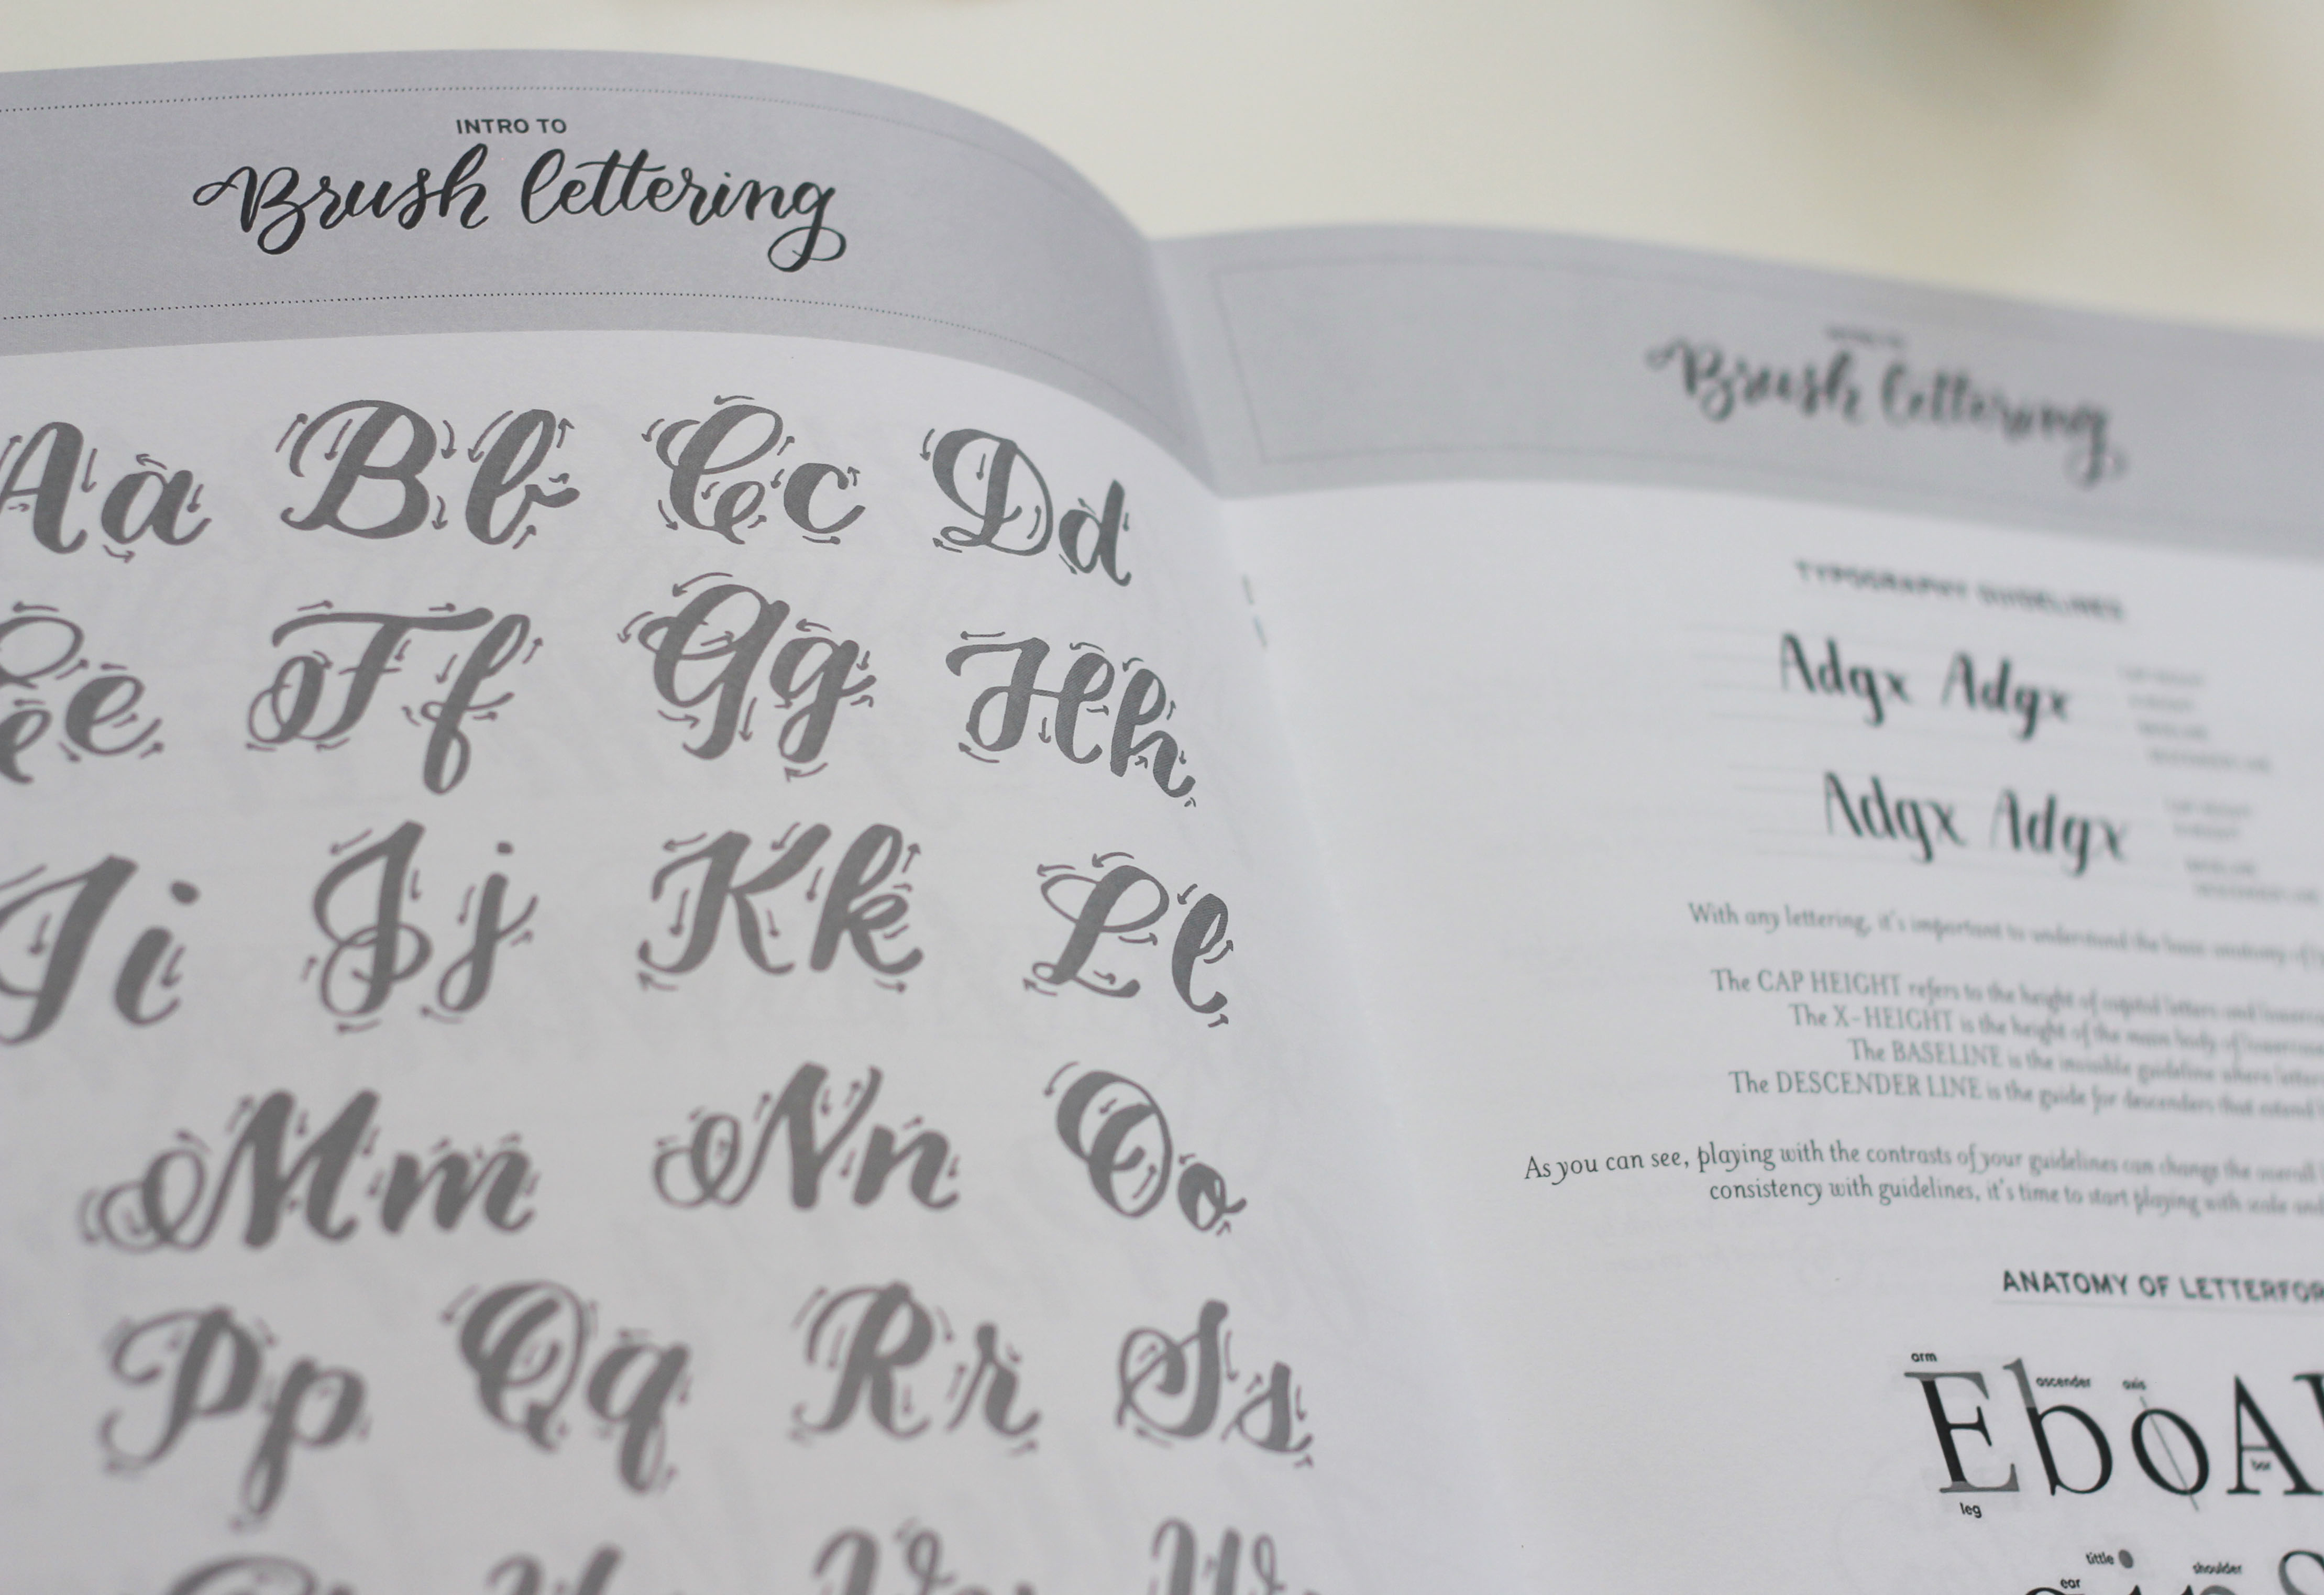 INTRO TO
Brush lettering
Aa Bb Cc Dd
Ee Ff Gg Hh
Ii Jj Kk Ll
Mm Nn Oo
Pp Qq Rr Ss
Brush lettering
TYPOGRAPHY GUIDELINES
Adgx Adgx
Adgx Adgx
With any lettering, it's important to understand the basic anatomy of
The CAP HEIGHT refers to the height of capital letters and
The X-HEIGHT is the height of the main body of
The BASELINE is the invisible guideline where
The DESCENDER LINE is the guide for descenders that extend
As you can see, playing with the contrasts of your guidelines can change the overall
consistency with guidelines, it's time to start playing with scale and
ANATOMY OF LETTERFOR
arm
ascender
axis
EboA
bar
leg
tittle
shoulder
ear